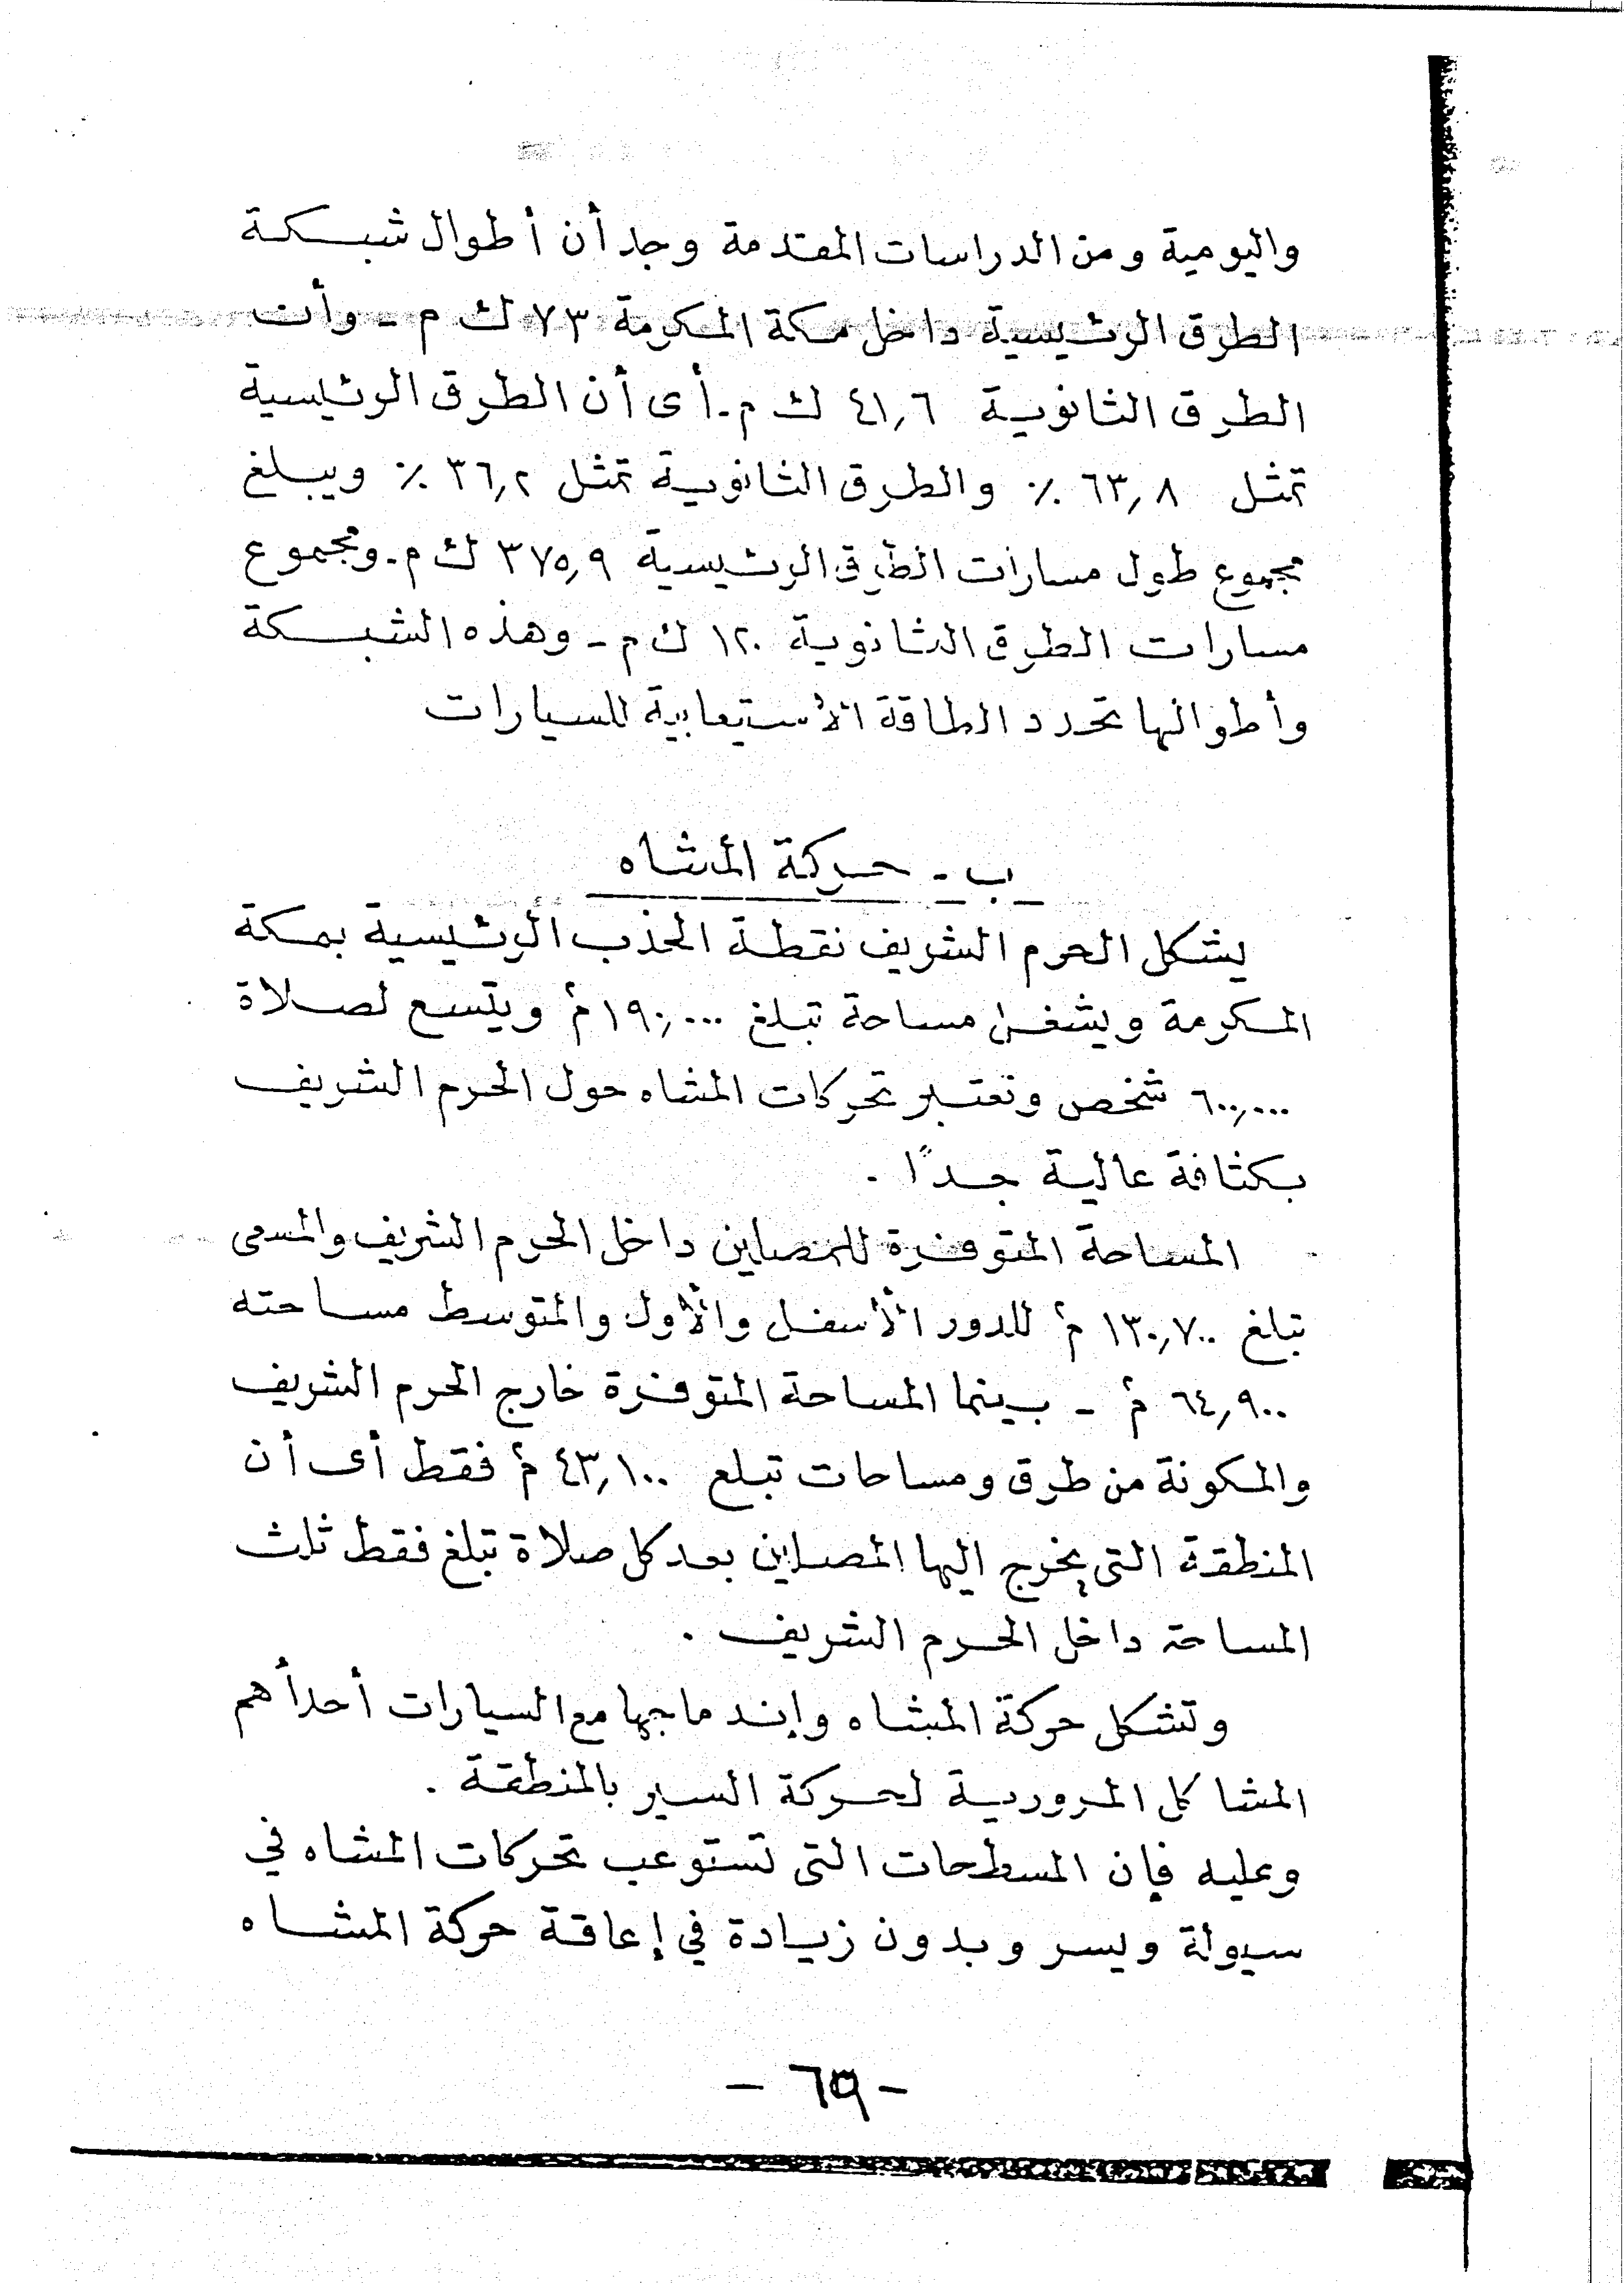 واليومية ومن الدراسات المقدمة وجد أن أطوال شبكة
الطرق الرئيسية داخل مكة المكرمة ٧٣ ك م - وأن
الطرق الثانوية ٤١,٦ ك م - أى أن الطرق الرئيسية
تمثل ٦٣,٨ ٪ والطرق الثانوية تمثل ٣٦,٢ ٪ ويبلغ
مجموع طول مسارات الطرق الرئيسية ٣٧٥,٩ ك م - ومجموع
مسارات الطرق الثانوية ١٢٠ ك م - وهذه الشبكة
وأطوالها تحدد الطاقة الأستيعابية للسيارات
ب - حركة المشاه
يشكل الحرم الشريف نقطة الجذب الرئيسية بمكة
المكرمة ويشغل مساحة تبلغ ١٩٠,٠٠٠ م٢ ويتسع لصلاة
٦٠٠,٠٠٠ شخص وتعتبر تحركات المشاه حول الحرم الشريف
بكثافة عالية جدًا .
المساحة المتوفرة للمصلين داخل الحرم الشريف والمسعى
تبلغ ١٣٠,٧٠٠ م٢ للدور الأسفل والأول والمتوسط مساحته
٦٤,٩٠٠ م٢ - بينما المساحة المتوفرة خارج الحرم الشريف
والمكونة من طرق ومساحات تبلع ٤٣,١٠٠ م٢ فقط أى أن
المنطقة التى يخرج اليها المصلين بعد كل صلاة تبلغ فقط ثلث
المساحة داخل الحرم الشريف .
وتشكل حركة المشاه وإندماجها مع السيارات أحد أهم
المشاكل المرورية لحركة السير بالمنطقة .
وعليه فإن المسطحات التى تستوعب تحركات المشاه في
سيولة ويسر وبدون زيادة في إعاقة حركة المشاه
- ٦٩ -